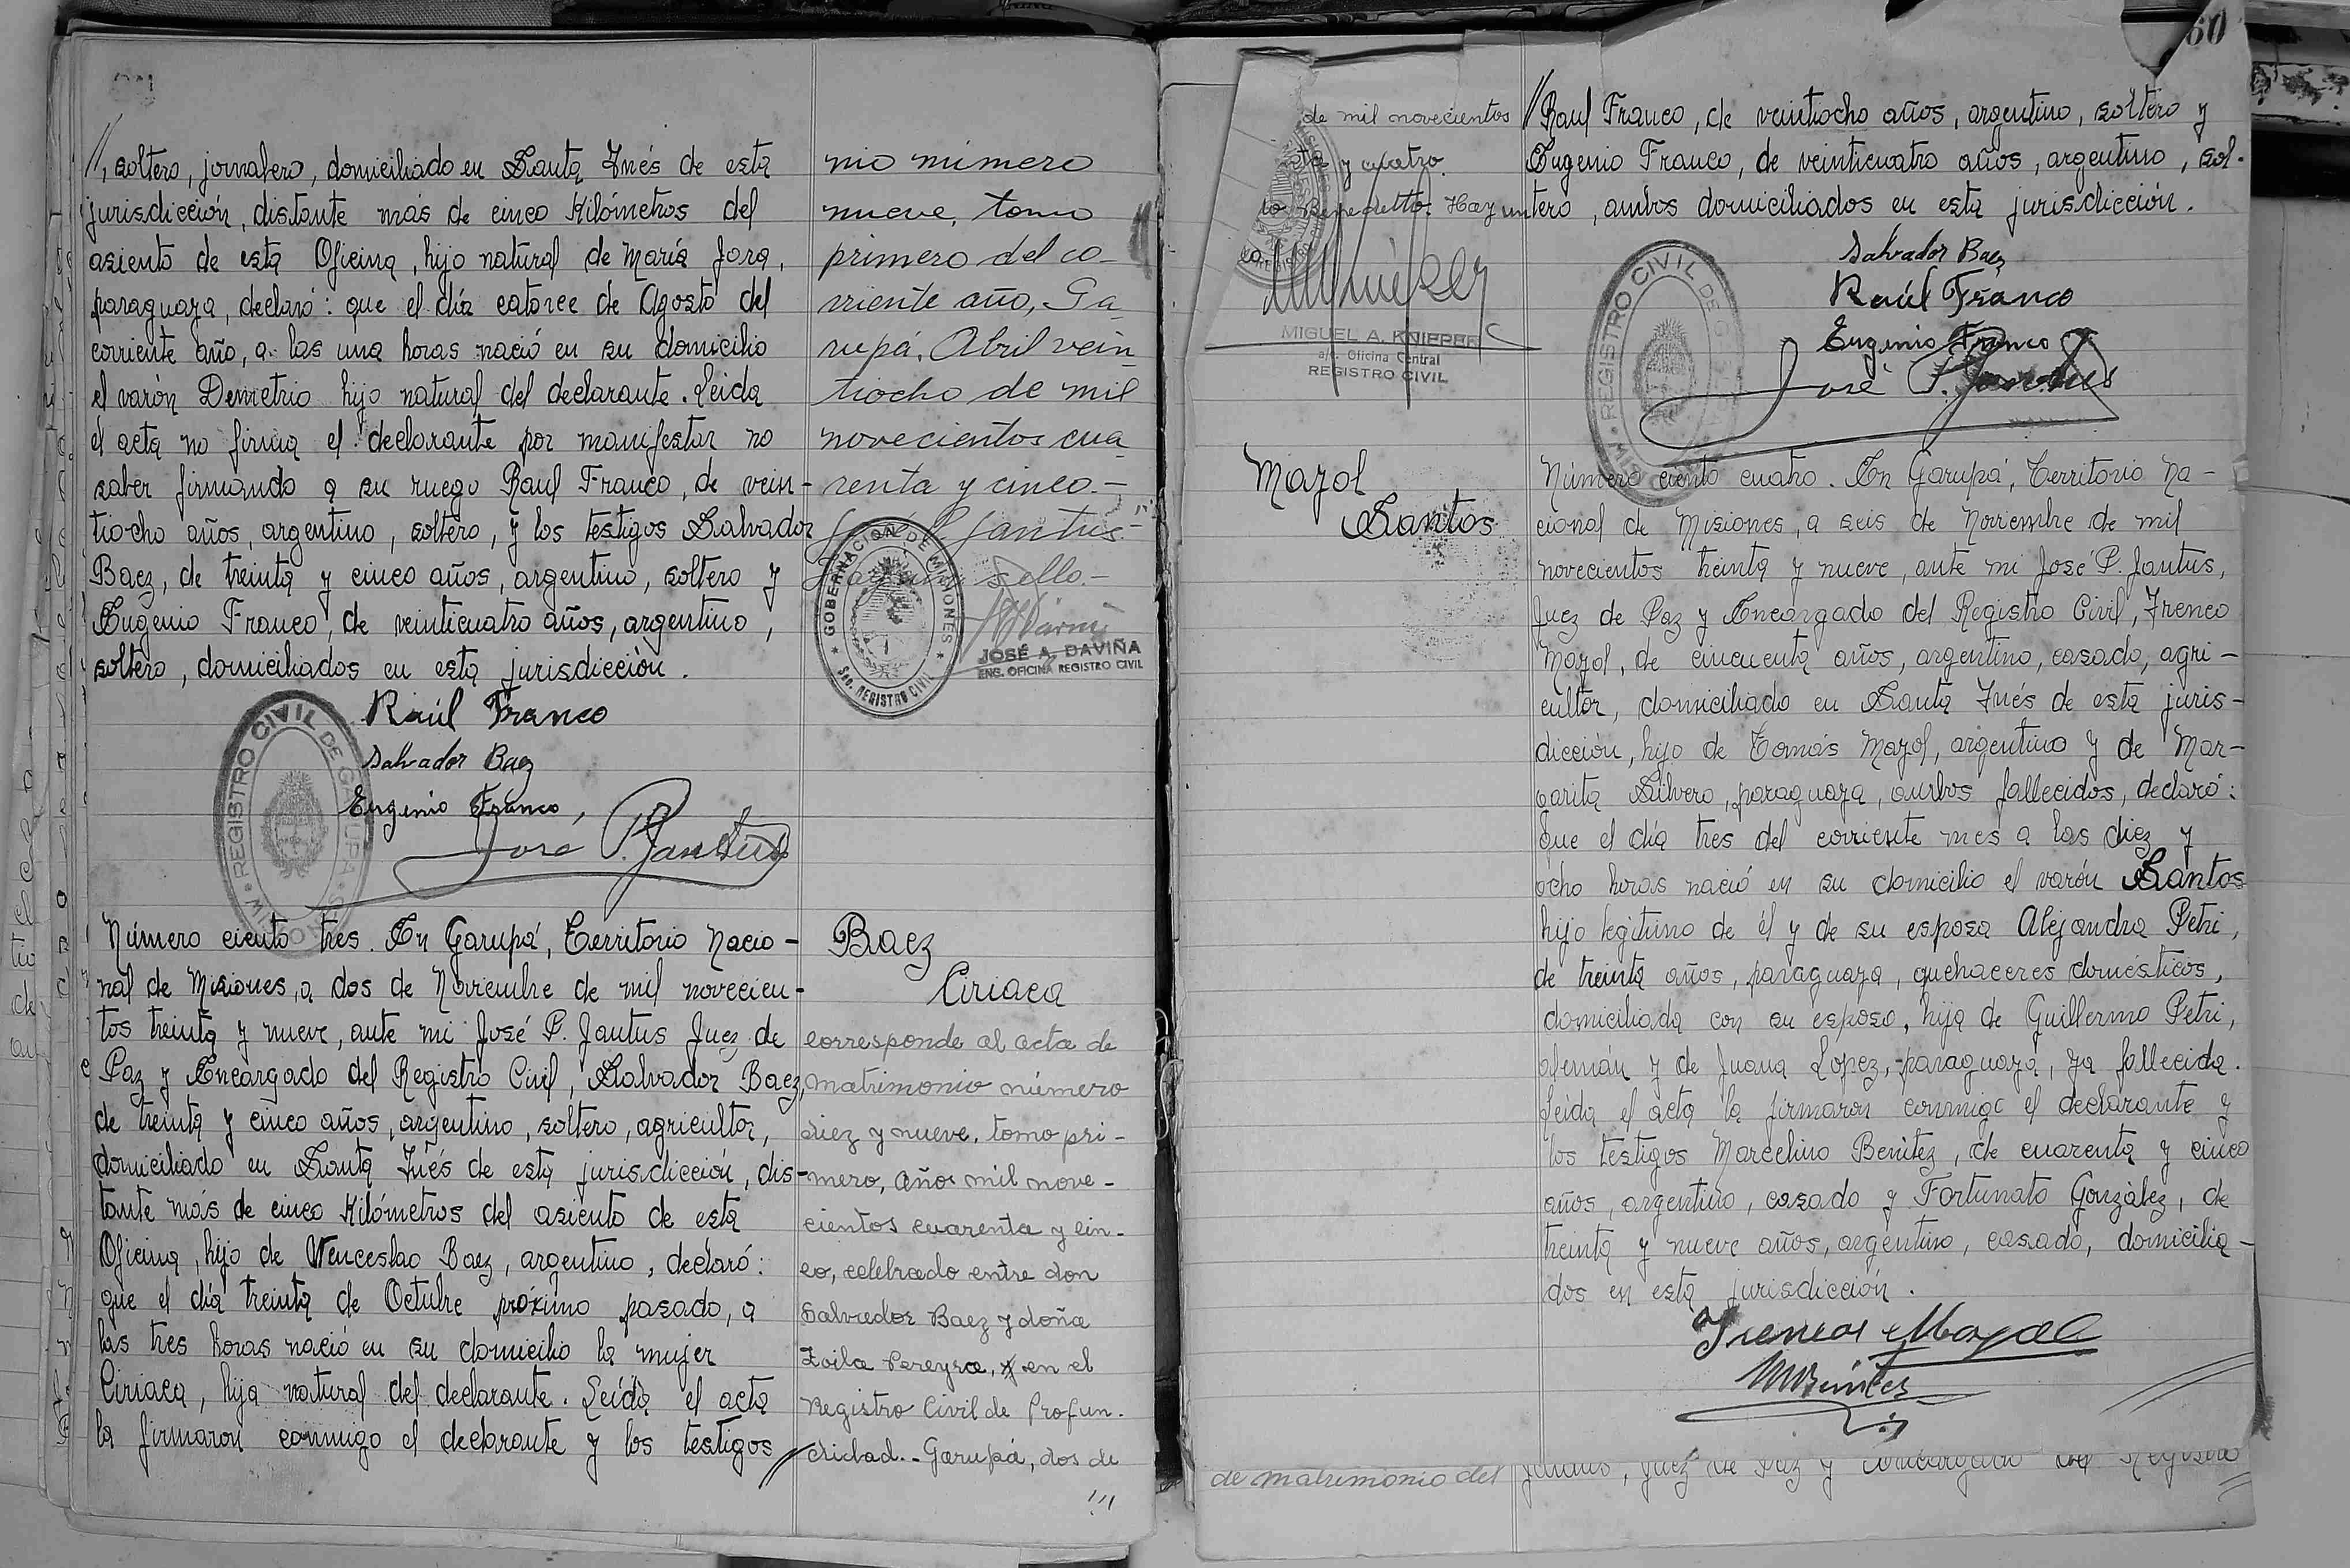 //, soltero, jornalero, domiciliado en Santa Inés de esta
jurisdicción, distante más de cinco Kilómetros del
asiento de esta Oficina, hijo natural de María Jara,
paraguaya, declaró: que el día catorce de Agosto del
corriente año, a las una horas nació en su domicilio
el varón Demetrio hijo natural del declarante. Leida
el acta no firma el declarante por manifestar no
saber firmando a su ruego Raul Franco, de vein-
tiocho años, argentino, soltero, y los testigos Salvador
Baez, de treinta y cinco años, argentino, soltero y
Eugenio Franco, de veinticuatro años, argentino,
soltero, domiciliados en esta jurisdicción.
Raúl Franco
Salvador Baez
Eugenio Franco,
José P. Jantus
REGISTRO CIVIL DE GARUPA · MISIONES
nio número
nueve, tomo
primero del co-
rriente año, Ga-
rupá, Abril vein
tiocho de mil
novecientos cua
renta y cinco.-
José P. Jantus.-"
Hay un sello.-
GOBERNACION DE MISIONES
Sec. REGISTRO CIVIL
JOSÉ A. DAVIÑA
ENC. OFICINA REGISTRO CIVIL
Número ciento tres. En Garupá, Territorio Nacio-
nal de Misiones, a dos de Noviembre de mil novecien-
tos treinta y nueve, ante mi José P. Jantus Juez de
Paz y Encargado del Registro Civil, Salvador Baez,
de treinta y cinco años, argentino, soltero, agricultor,
domiciliado en Santa Inés de esta jurisdicción, dis-
tante más de cinco Kilómetros del asiento de esta
Oficina, hijo de Wenceslao Baez, argentino, declaró:
que el día treinta de Octubre próximo pasado, a
las tres horas nació en su domicilio la mujer
Ciriaca, hija natural del declarante. Leída el acta
la firmaron conmigo el declarante y los testigos //
Baez
Ciriaca
corresponde al acta de
matrimonio número
diez y nueve, tomo pri-
mero, año mil nove-
cientos cuarenta y cin-
co, celebrado entre don
Salvador Baez y doña
Zoila Pereyra, en el
Registro Civil de Profun-
didad.- Garupá, dos de
///
60
de mil novecientos
y cuatro.
Benedetto. Hay un
MIGUEL A. KNIEPER
a/c. Oficina Central
REGISTRO CIVIL
// Raul Franco, de veintiocho años, argentino, soltero y
Eugenio Franco, de veinticuatro años, argentino, sol-
tero, ambos domiciliados en esta jurisdicción.
Salvador Baez
Raúl Franco
Eugenio Franco
José P. Jantus
REGISTRO CIVIL DE
Mazol
Santos
Número ciento cuatro. En Garupá, Territorio Na-
cional de Misiones, a seis de Noviembre de mil
novecientos treinta y nueve, ante mi José P. Jantus,
Juez de Paz y Encargado del Registro Civil, Ireneo
Mazol, de cincuenta años, argentino, casado, agri-
cultor, domiciliado en Santa Inés de esta juris-
dicción, hijo de Tomás Mazol, argentino y de Mar-
garita Silvero, paraguaya, ambos fallecidos, declaró:
Que el día tres del corriente mes a las diez y
ocho horas nació en su domicilio el varón Santos
hijo legitimo de él y de su esposa Alejandra Petri,
de treinta años, paraguaya, quehaceres domésticos,
domiciliada con su esposo, hija de Guillermo Petri,
alemán y de Juana Lopez, paraguaya, ya fallecida.
Leida el acta la firmaron conmigo el declarante y
los testigos Marcelino Benitez, de cuarenta y cinco
años, argentino, casado y Fortunato González, de
treinta y nueve años, argentino, casado, domicilia-
dos en esta jurisdicción.
MBenitez
de matrimonio del
Jantus, Juez de Paz y Encargado del Registro